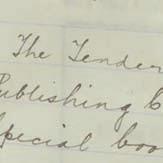 The Tender
Publishing C
Special boo